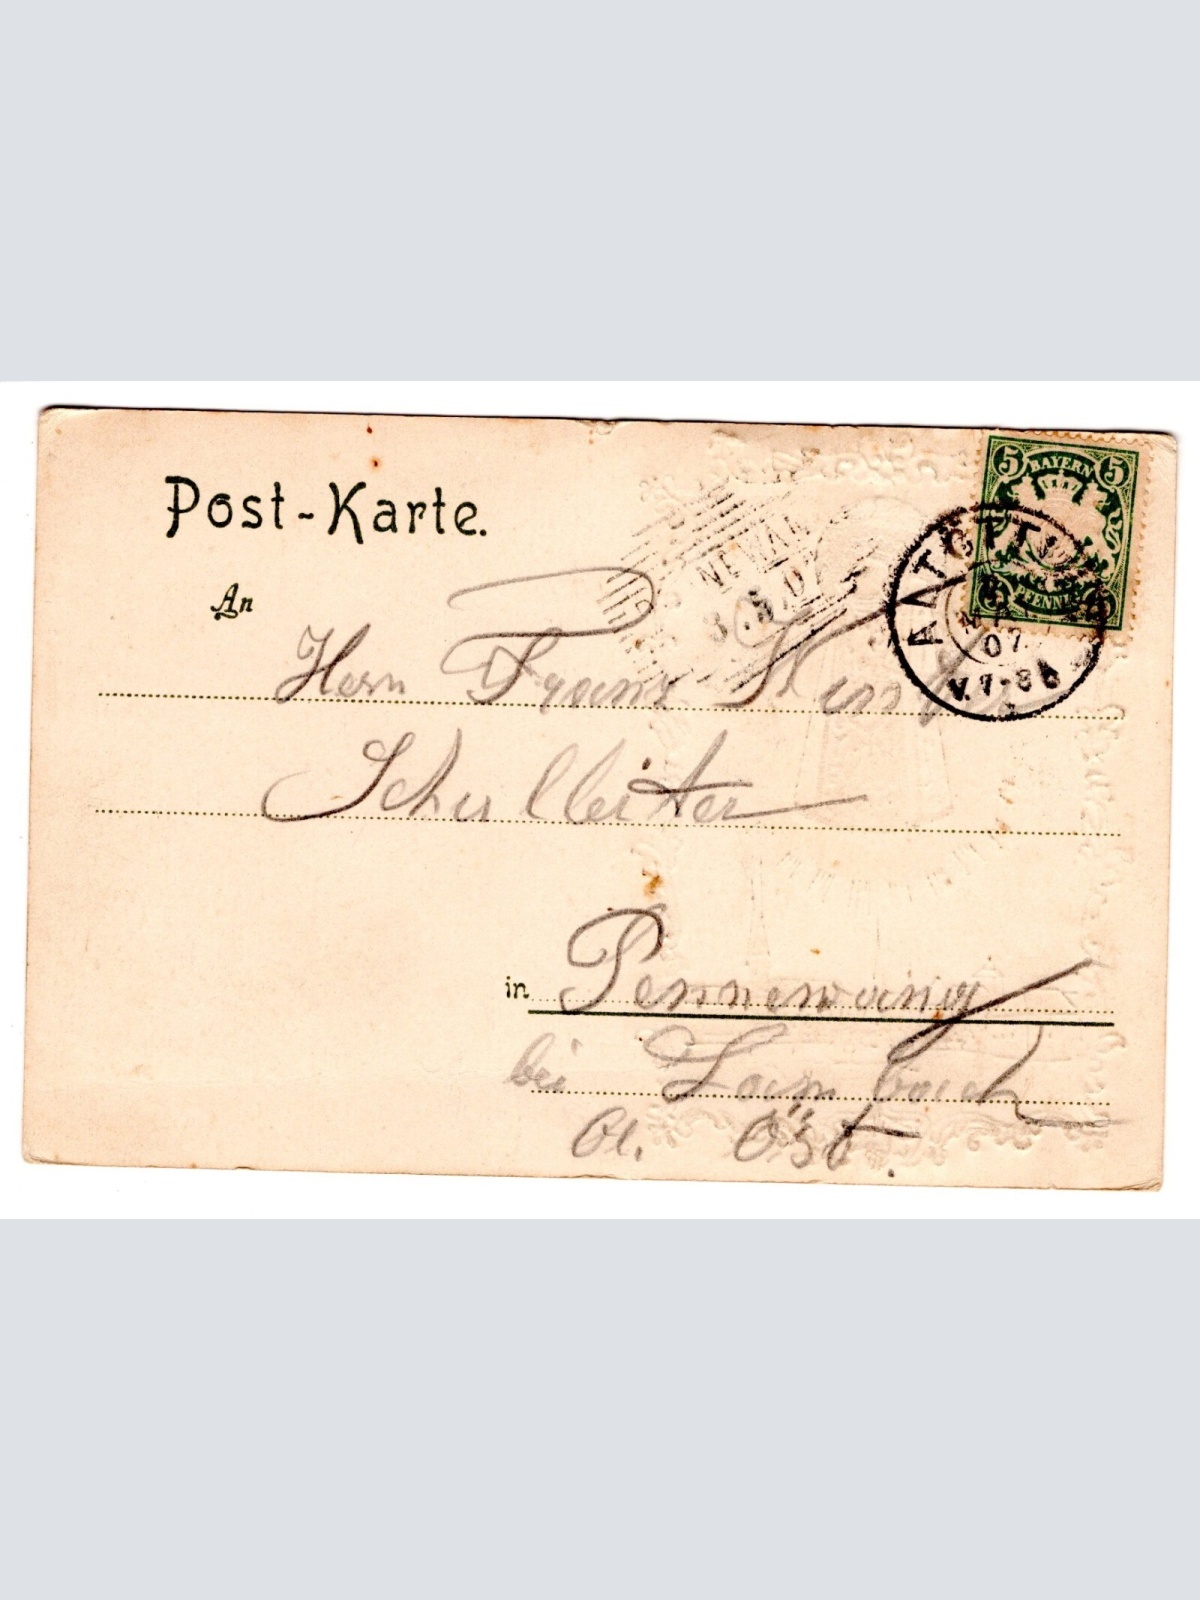 Post-Karte.
5 BAYERN 5
PFENNIG
ALTÖTTING
07
V.7-8
8.5.07
An
Herrn Franz
Schulleiter
in Pennewang
bei Lambach
Ob. Öst.